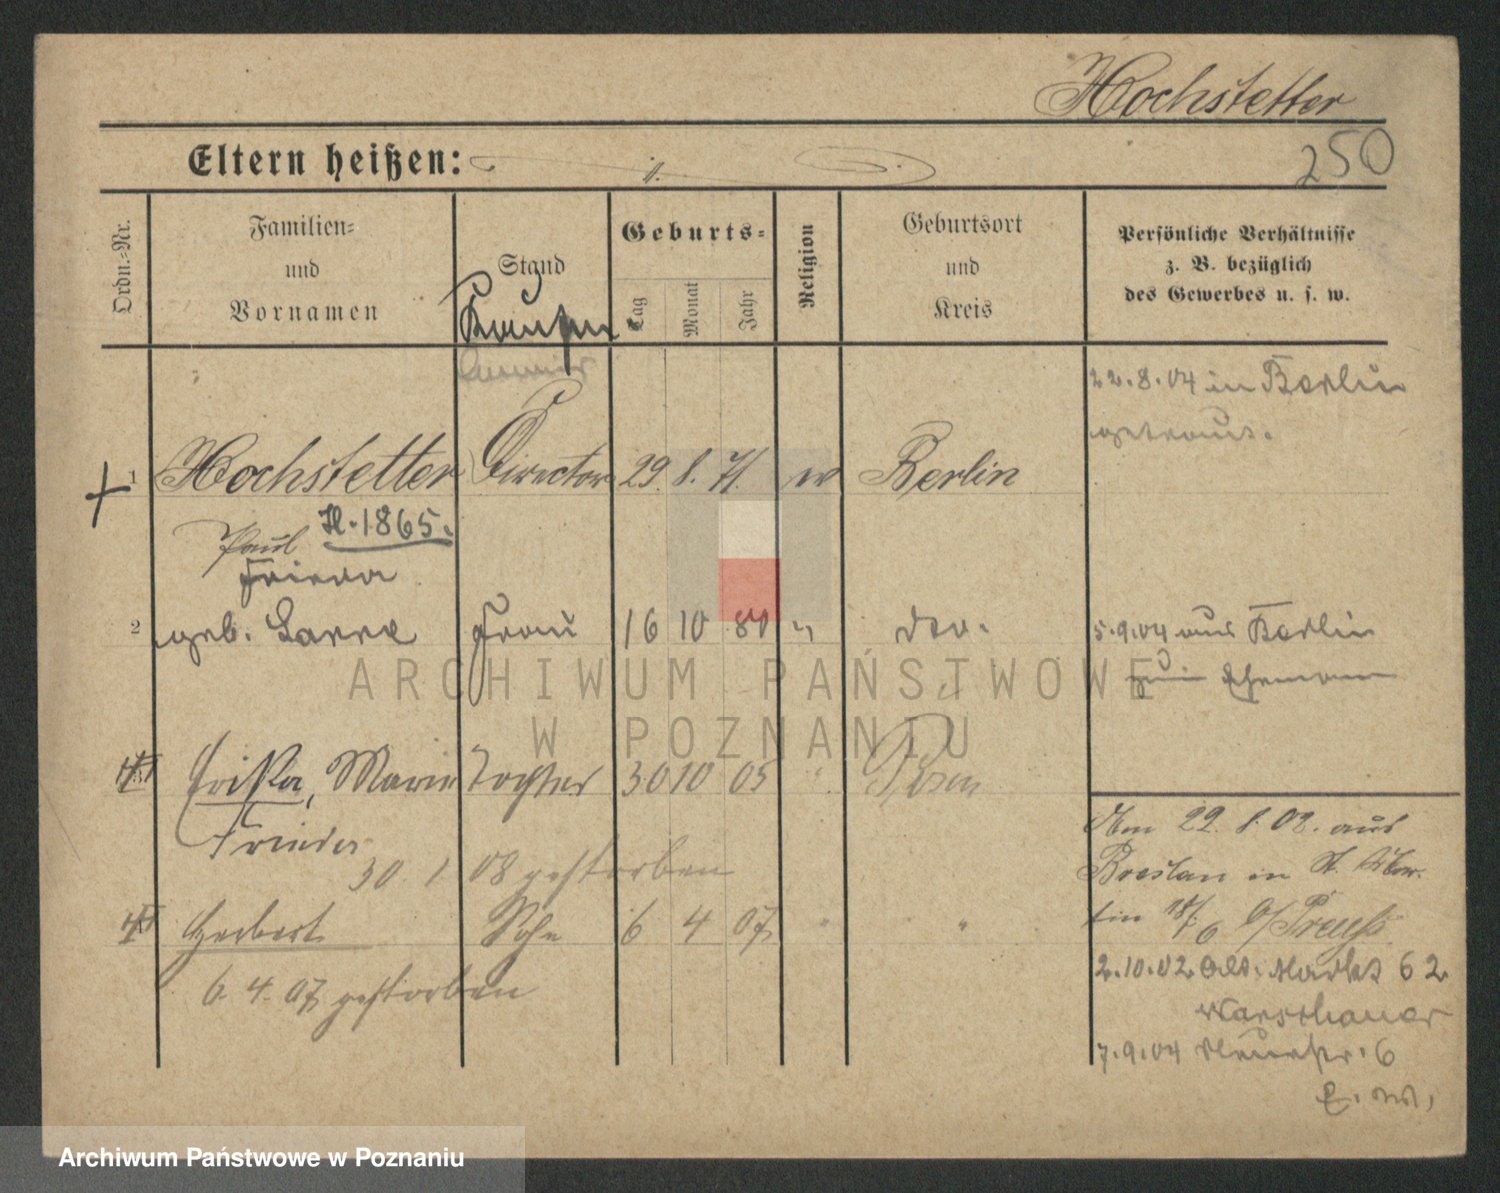 Hochstetter
250
Eltern heißen:
Ordn.-Nr.
Familien-
und
Vornamen
Stand
Geburts-
Tag
Monat
Jahr
Religion
Geburtsort
und
Kreis
Persönliche Verhältnisse
z. B. bezüglich
des Gewerbes u. s. w.
22.8.04 in Berlin
getraut.
1 Hochstetter Director 29. 8. 71. ev Berlin
Paul H. 1865.
Frieda
2 geb. Frau 16 10 80 " do.
5.9.04 aus Berlin
zum Ehemann
ARCHIWUM PAŃSTWOWE
W POZNANIU
Erika, Marie Tochter 30 10 05 " Posen
Frieda
30 1 08 gestorben
Herbert Sohn 6 4 07 " "
6. 4. 07 gestorben
Am 22. 8. 02. aus
Breslau in St.
18/6
2.10.02 Alt. Markt 62
Warschauer
7.9.04 6
Archiwum Państwowe w Poznaniu